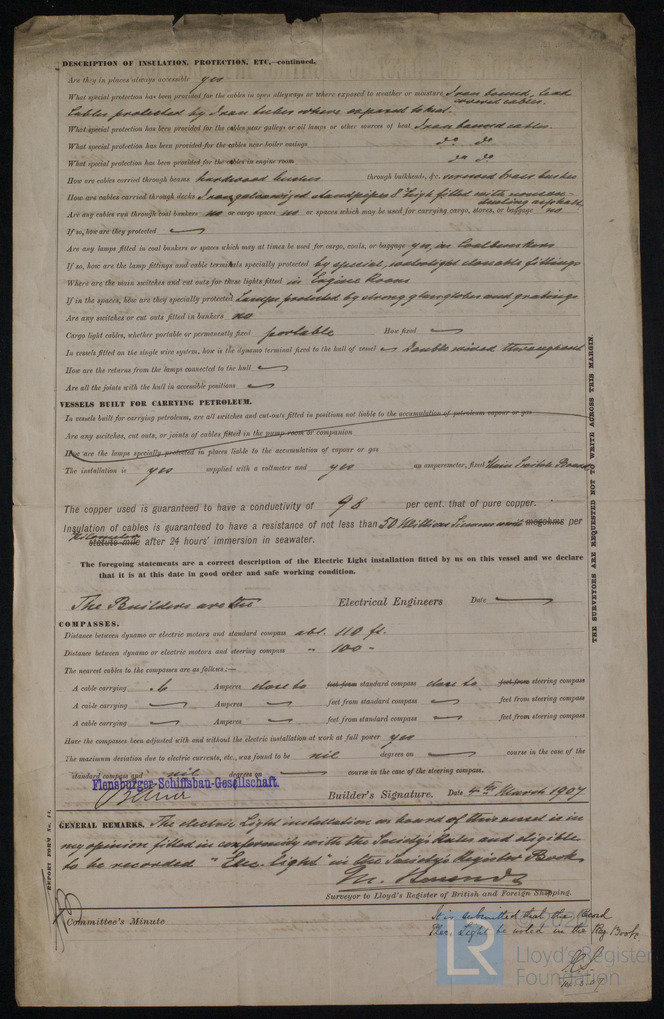 DESCRIPTION OF INSULATION, PROTECTION, ETC.—continued.
Are they in places always accessible yes
What special protection has been provided for the cables in open alleyways or where exposed to weather or moisture Iron bound, lead
covered cables.
Cables protected by Iron tubes where exposed to heat.
What special protection has been provided for the cables near galleys or oil lamps or other sources of heat Iron bound cables.
What special protection has been provided for the cables near boiler casings do do
What special protection has been provided for the cables in engine room do do
How are cables carried through beams hardwood bushes through bulkheads, &c. screwed brass bushes
How are cables carried through decks Iron galvanized standpipes 8" high filled with
asphalt
Are any cables run through coal bunkers no or cargo spaces no or spaces which may be used for carrying cargo, stores, or baggage no
If so, how are they protected
Are any lamps fitted in coal bunkers or spaces which may at times be used for cargo, coals, or baggage yes, in Coalbunkers
If so, how are the lamp fittings and cable terminals specially protected by special, watertight closable fittings
Where are the main switches and cut outs for these lights fitted in Engine Room
If in the spaces, how are they specially protected Lamps protected by strong glass globes and gratings
Are any switches or cut outs fitted in bunkers no
Cargo light cables, whether portable or permanently fixed portable How fixed
In vessels fitted on the single wire system, how is the dynamo terminal fixed to the hull of vessel Double wired throughout
How are the returns from the lamps connected to the hull
Are all the joints with the hull in accessible positions
VESSELS BUILT FOR CARRYING PETROLEUM.
In vessels built for carrying petroleum, are all switches and cut-outs fitted in positions not liable to the accumulation of petroleum vapour or gas
Are any switches, cut outs, or joints of cables fitted in the pump room or companion
How are the lamps specially protected in places liable to the accumulation of vapour or gas
The installation is yes supplied with a voltmeter and yes an amperemeter, fixed Main Switch Board
The copper used is guaranteed to have a conductivity of 98 per cent. that of pure copper.
Insulation of cables is guaranteed to have a resistance of not less than 50 Millions megohms per
Kilometer statute mile after 24 hours' immersion in seawater.
The foregoing statements are a correct description of the Electric Light installation fitted by us on this vessel and we declare
that it is at this date in good order and safe working condition.
The Builders are the Electrical Engineers Date
COMPASSES.
Distance between dynamo or electric motors and standard compass abt. 110 ft.
Distance between dynamo or electric motors and steering compass " 100 "
The nearest cables to the compasses are as follows:—
A cable carrying .6 Amperes close to feet from standard compass close to feet from steering compass
A cable carrying Amperes feet from standard compass feet from steering compass
A cable carrying Amperes feet from standard compass feet from steering compass
Have the compasses been adjusted with and without the electric installation at work at full power yes
The maximum deviation due to electric currents, etc., was found to be nil degrees on course in the case of the
standard compass and nil degrees on course in the case of the steering compass.
Flensburger Schiffsbau-Gesellschaft.
Builder's Signature. Date 4th March 1907
GENERAL REMARKS. The electric Light installation on board of this vessel is in
my opinion fitted in conformity with the Society's Rules and eligible
to be recorded "Elec. Light" in the Society's Register Book
Surveyor to Lloyd's Register of British and Foreign Shipping.
Committee's Minute
It is submitted that the Record
Elec. Light be noted in the Reg. Book.
THE SURVEYORS ARE REQUESTED NOT TO WRITE ACROSS THIS MARGIN.
REPORT FORM No. 11.
LR
Lloyd's Register
Foundation